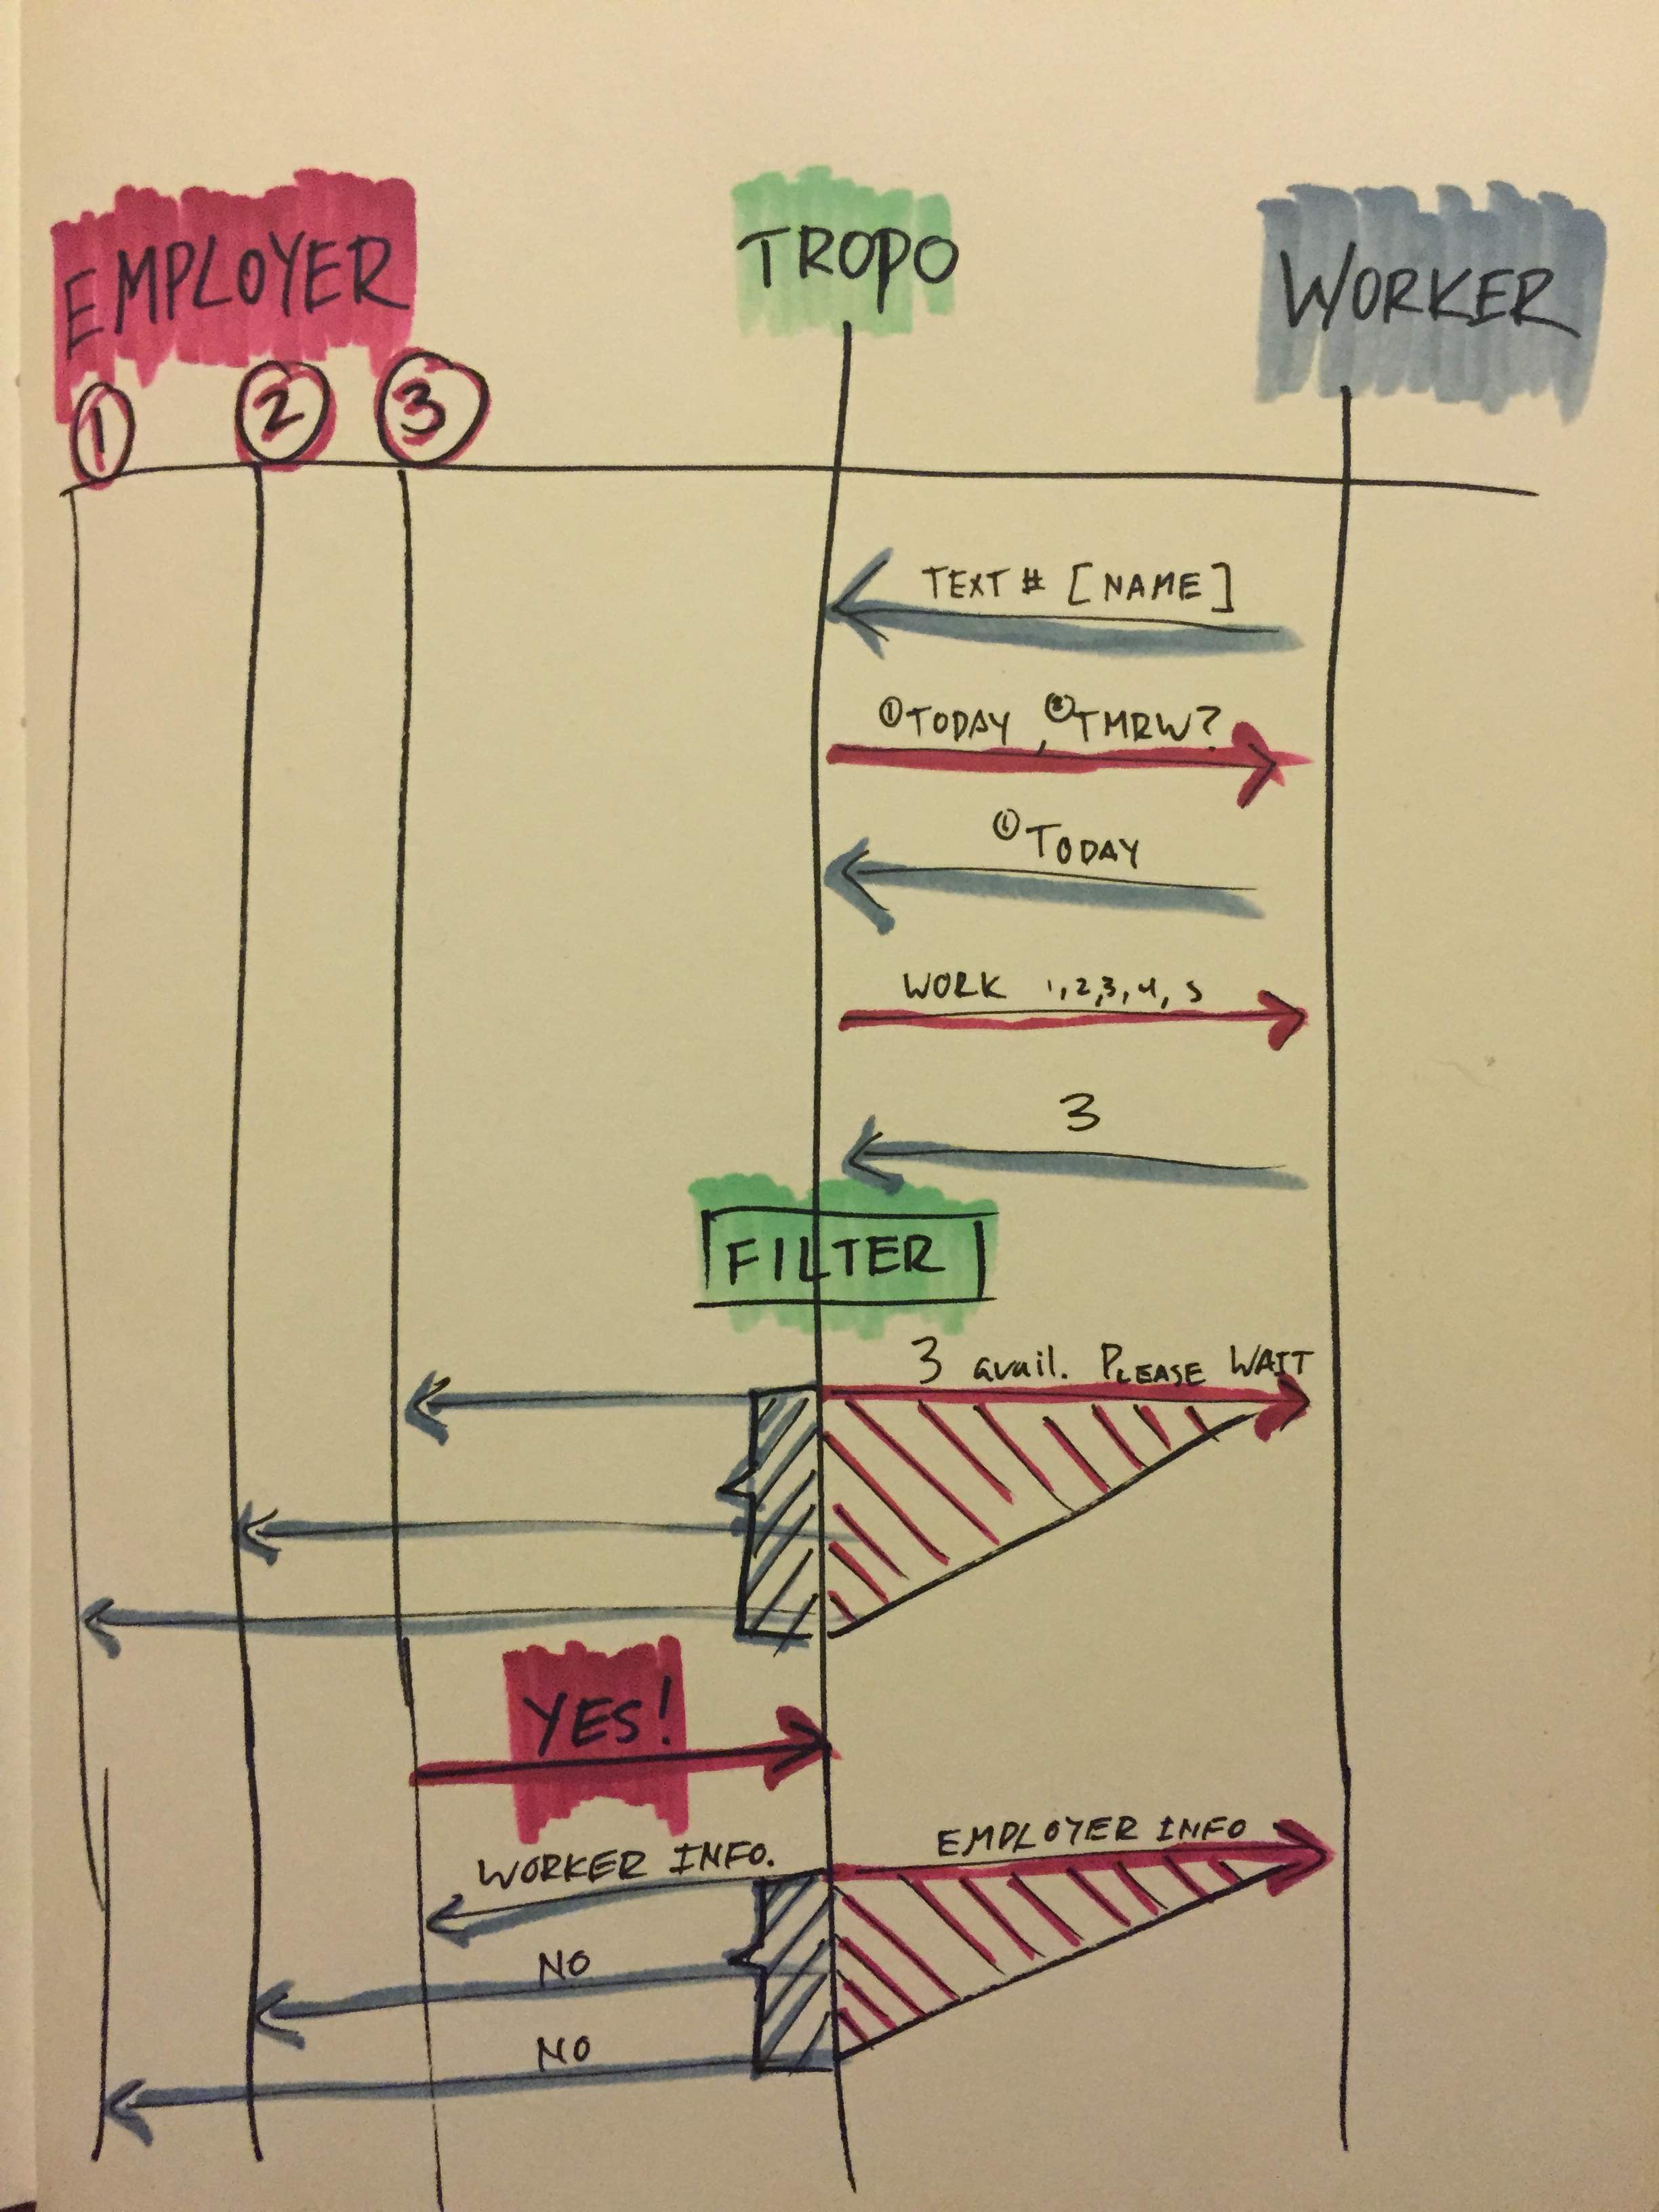 EMPLOYER
TROPO
WORKER
1 2 3
TEXT # [NAME]
① TODAY, ② TMRW?
① TODAY
WORK 1,2,3,4,5
3
FILTER
3 avail. PLEASE WAIT
YES!
WORKER INFO.
EMPLOYER INFO
NO
NO